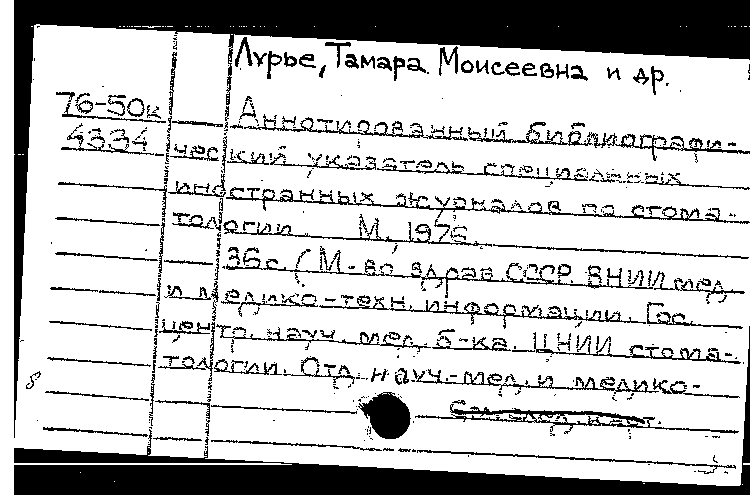 Лурье, Тамара Моисеевна и др.
76-50к
4334
Аннотированный библиографи-
ческий указатель специальных
иностранных журналов по стома-
тологии. М., 1976.
36с. (М-во здрав. СССР. ВНИИ мед.
и медико-техн. информации. Гос.
центр. науч. мед. б-ка. ЦНИИ стома-
тологии. Отд. науч.-мед. и медико-
См. след. карт.
8